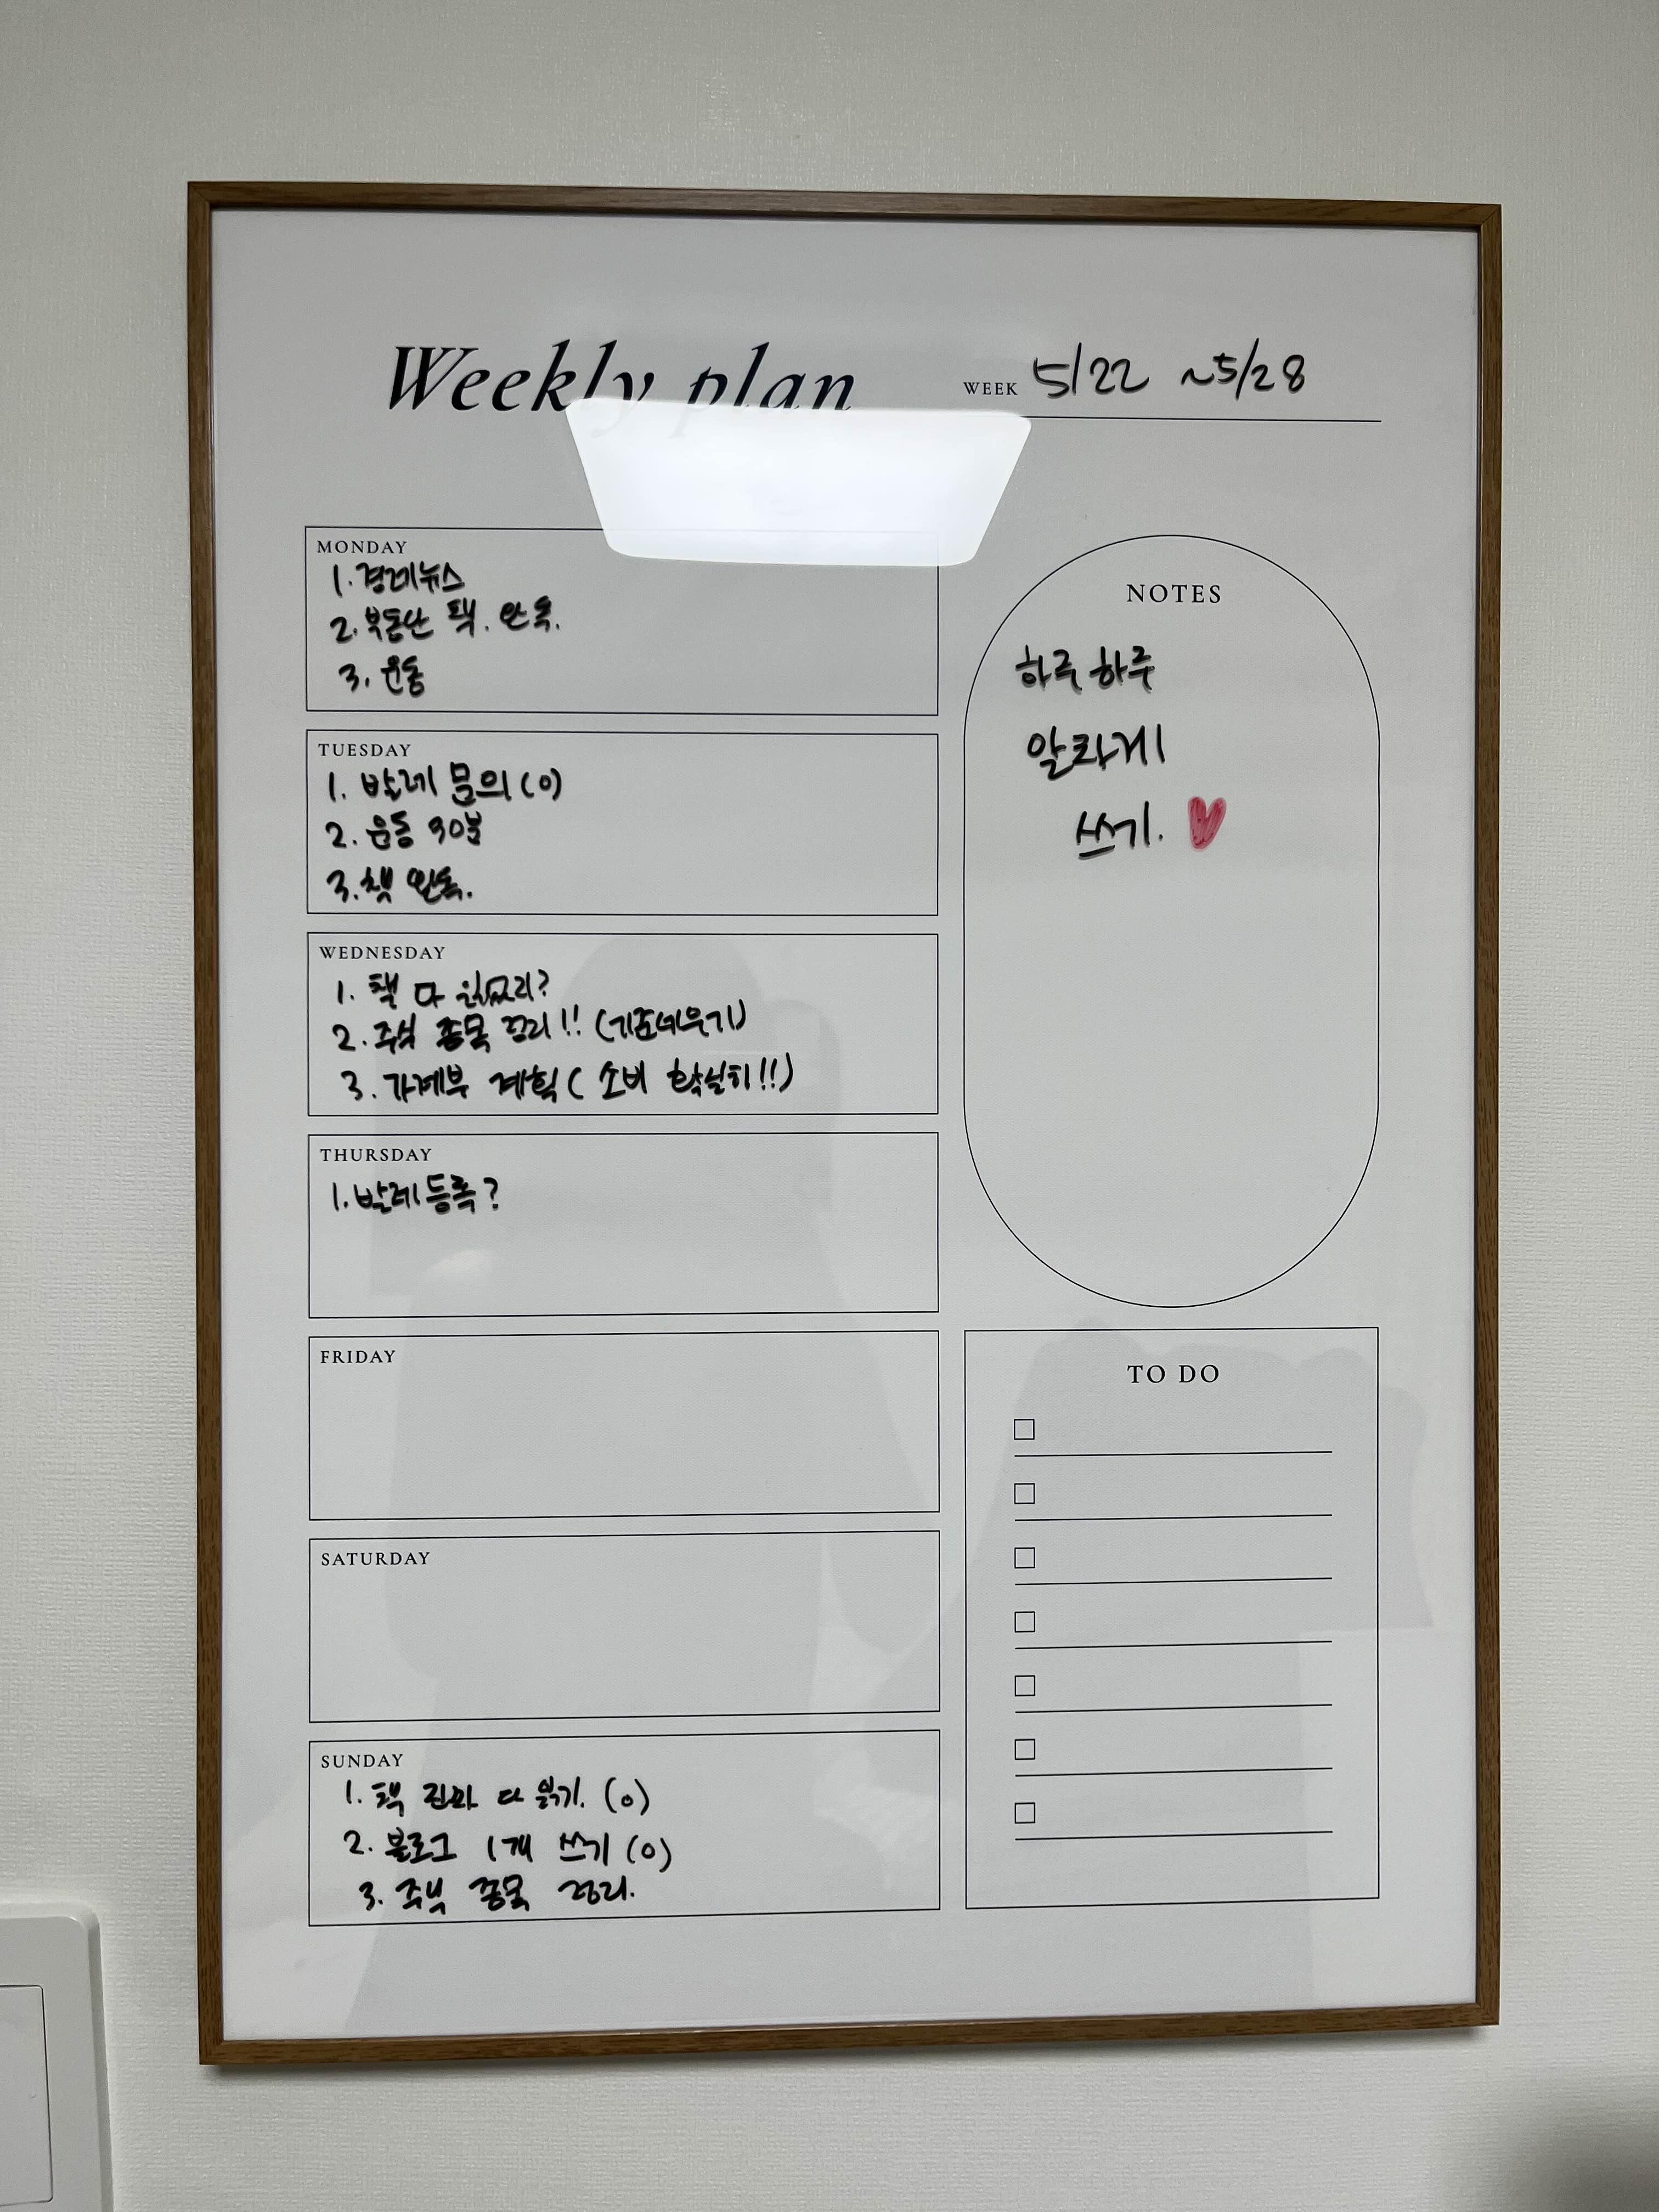 Weekly plan
WEEK 5/22 ~5/28
MONDAY
1. 경제뉴스
2. 부동산 책. 완독.
3. 운동
TUESDAY
1. 발레 문의 (0)
2. 운동 30분
3. 책 완독.
WEDNESDAY
1. 책 다
2. 주식 종목 정리!! (기준세우기)
3. 가계부 계획 ( 소비 확실히!!)
THURSDAY
1. 발레 등록?
FRIDAY
SATURDAY
SUNDAY
1. 책 다 읽기. (0)
2. 블로그 1개 쓰기 (0)
3. 주식 종목 정리.
NOTES
하루하루
알차게
쓰기.
TO DO